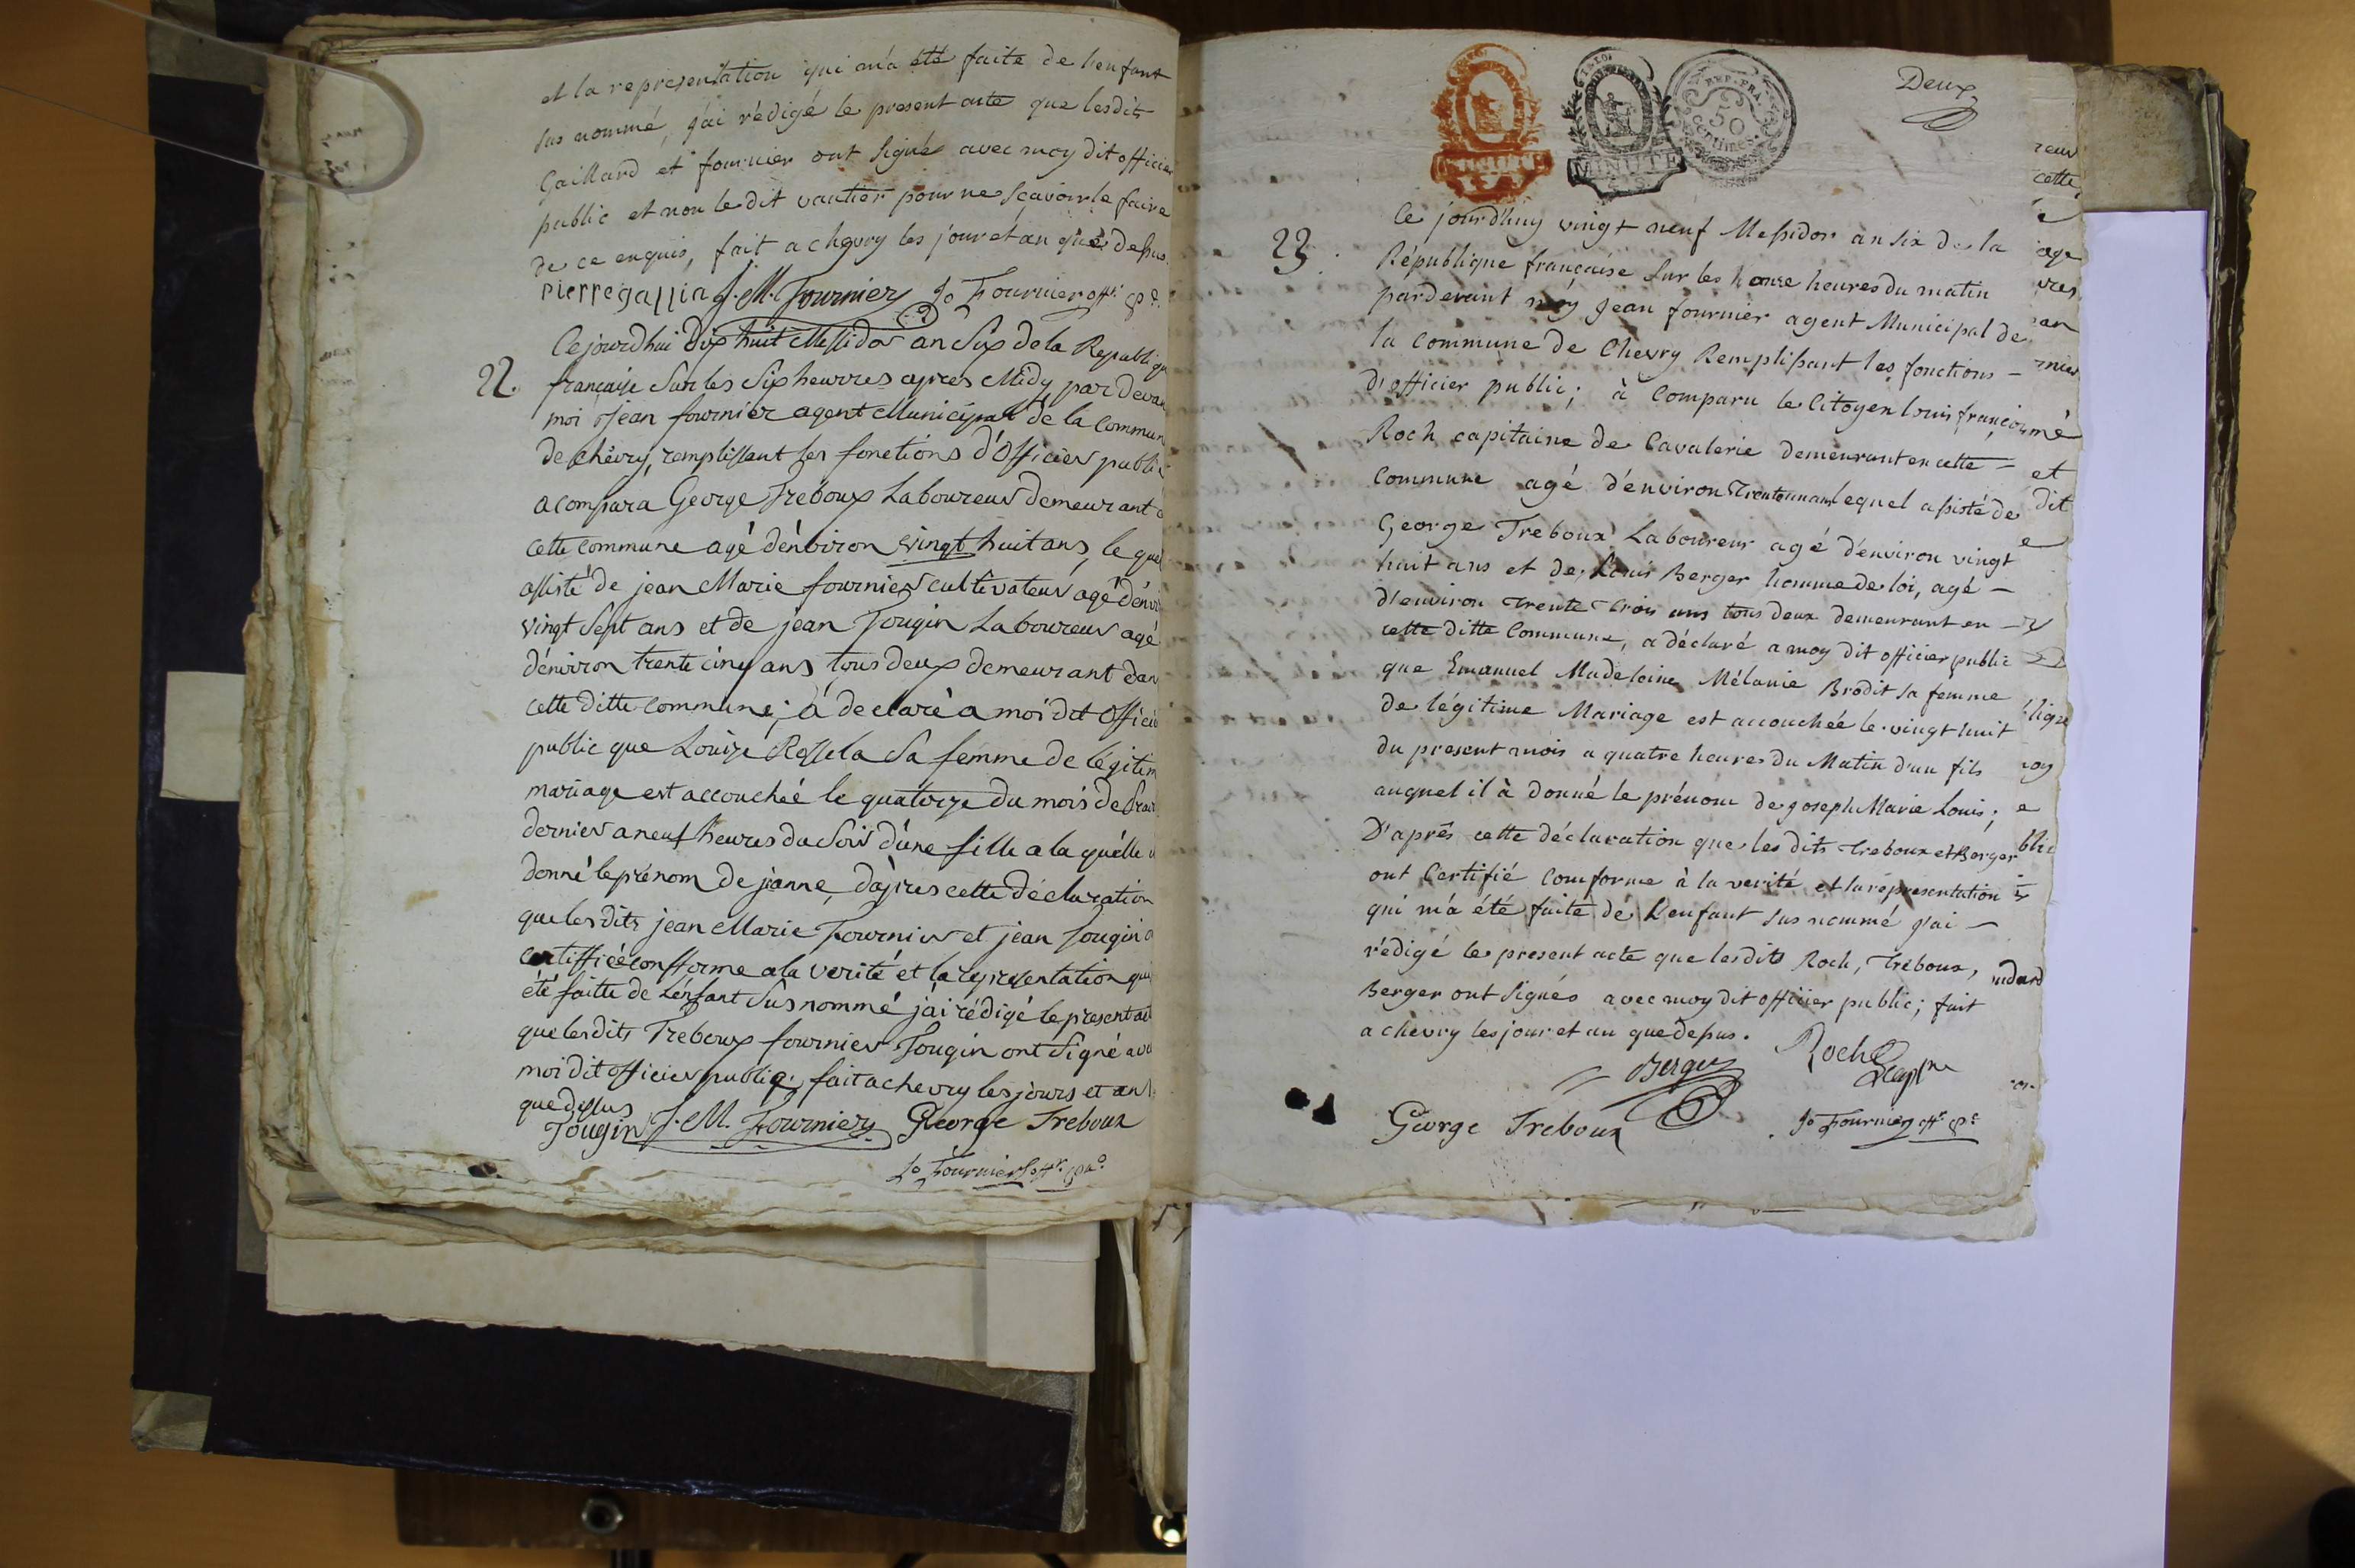 et la representation qui m'a été faite de l'enfant
sus nommé, j'ai rédigé le present acte que lesdits
Gaillard et fournier ont signé avec moy dit officier
public et non le dit vautier pour ne sçavoir le faire
de ce enquis, fait a chevry les jour et an que dessus.
pierre gallia J. M. Fournier Jo Fournier off. p.
22.
Cejourdhui dix huit Messidor an Six de la Republiq
française Sur les Six heurres apres Midy par devan
moi jean fournier agent Municipal de la Commun
de chevry, remplissant les fonctions d'Officier public
a comparu George Treboux Laboureur demeurant
cette commune agé dénviron vingt huit ans, le quel
assisté de jean Marie fournier cultivateur agé d'envi
vingt Sept ans et de jean Jougin Laboureur agé
dénviron trente cinq ans tous deux demeurant dan
cette ditte commune; à declaré a moi dit Officie
public que Louize Sa femme de legitim
mariage est accouchéé le quatorze du mois de
dernier a neuf heures du Soir d'une fille a la quélle
donné le prénom de jeanne, dàpres cette déclaration
que les dits jean Marie Fournier et jean Jougin
certiffiée confforme a la verité et la representation qui
été faitte de L'enfant Sus nommé j'ai rédigé le present act
que les dits Treboux fournier Jougin ont Signé ave
moi dit officier public; fait a chevry les jours et an
que dessus
Jougin J. M. Fournier George Treboux
Jo Fournier off.
REP. FRA.
50
centimes
MINUTE
Deux
23.
Ce jourd'huy vingt neuf Messidor an six de la
République française sur les honze heures du matin
pardevant moy Jean fournier agent Municipal de
la Commune de Chevry Remplissant les fonctions –
d'officier public; à Comparu le Citoyen louis françois
Roch capitaine de Cavalerie demeurant en cette –
Commune agé d'environ lequel assisté de
George Treboux Laboureur agé d'environ vingt
huit ans et de Louis Berger homme de loi, agé –
d'environ trente trois ans tous deux demeurant en –
cette ditte Commune, a déclaré a moy dit officier public
que Emanuel Madeleine Mélanie Brodit sa femme
de légitime Mariage est accouchéé le vingt huit
du present mois a quatre heures du Matin d'un fils
auquel il à donné le prénom de joseph Marie Louis;
D'aprés cette déclaration que les dits Treboux et Berger
ont Certifié Comforme à la verité et la representation
qui m'a été faite de L'enfant sus nommé j'ai –
rédigé le present acte que lesdits Roch, Treboux,
Berger ont Signés avec moy dit officier public; fait
a chevry les jour et an que dessus.
Berger Roch
Cap.ne
George Treboux Jo Fournier off. p.